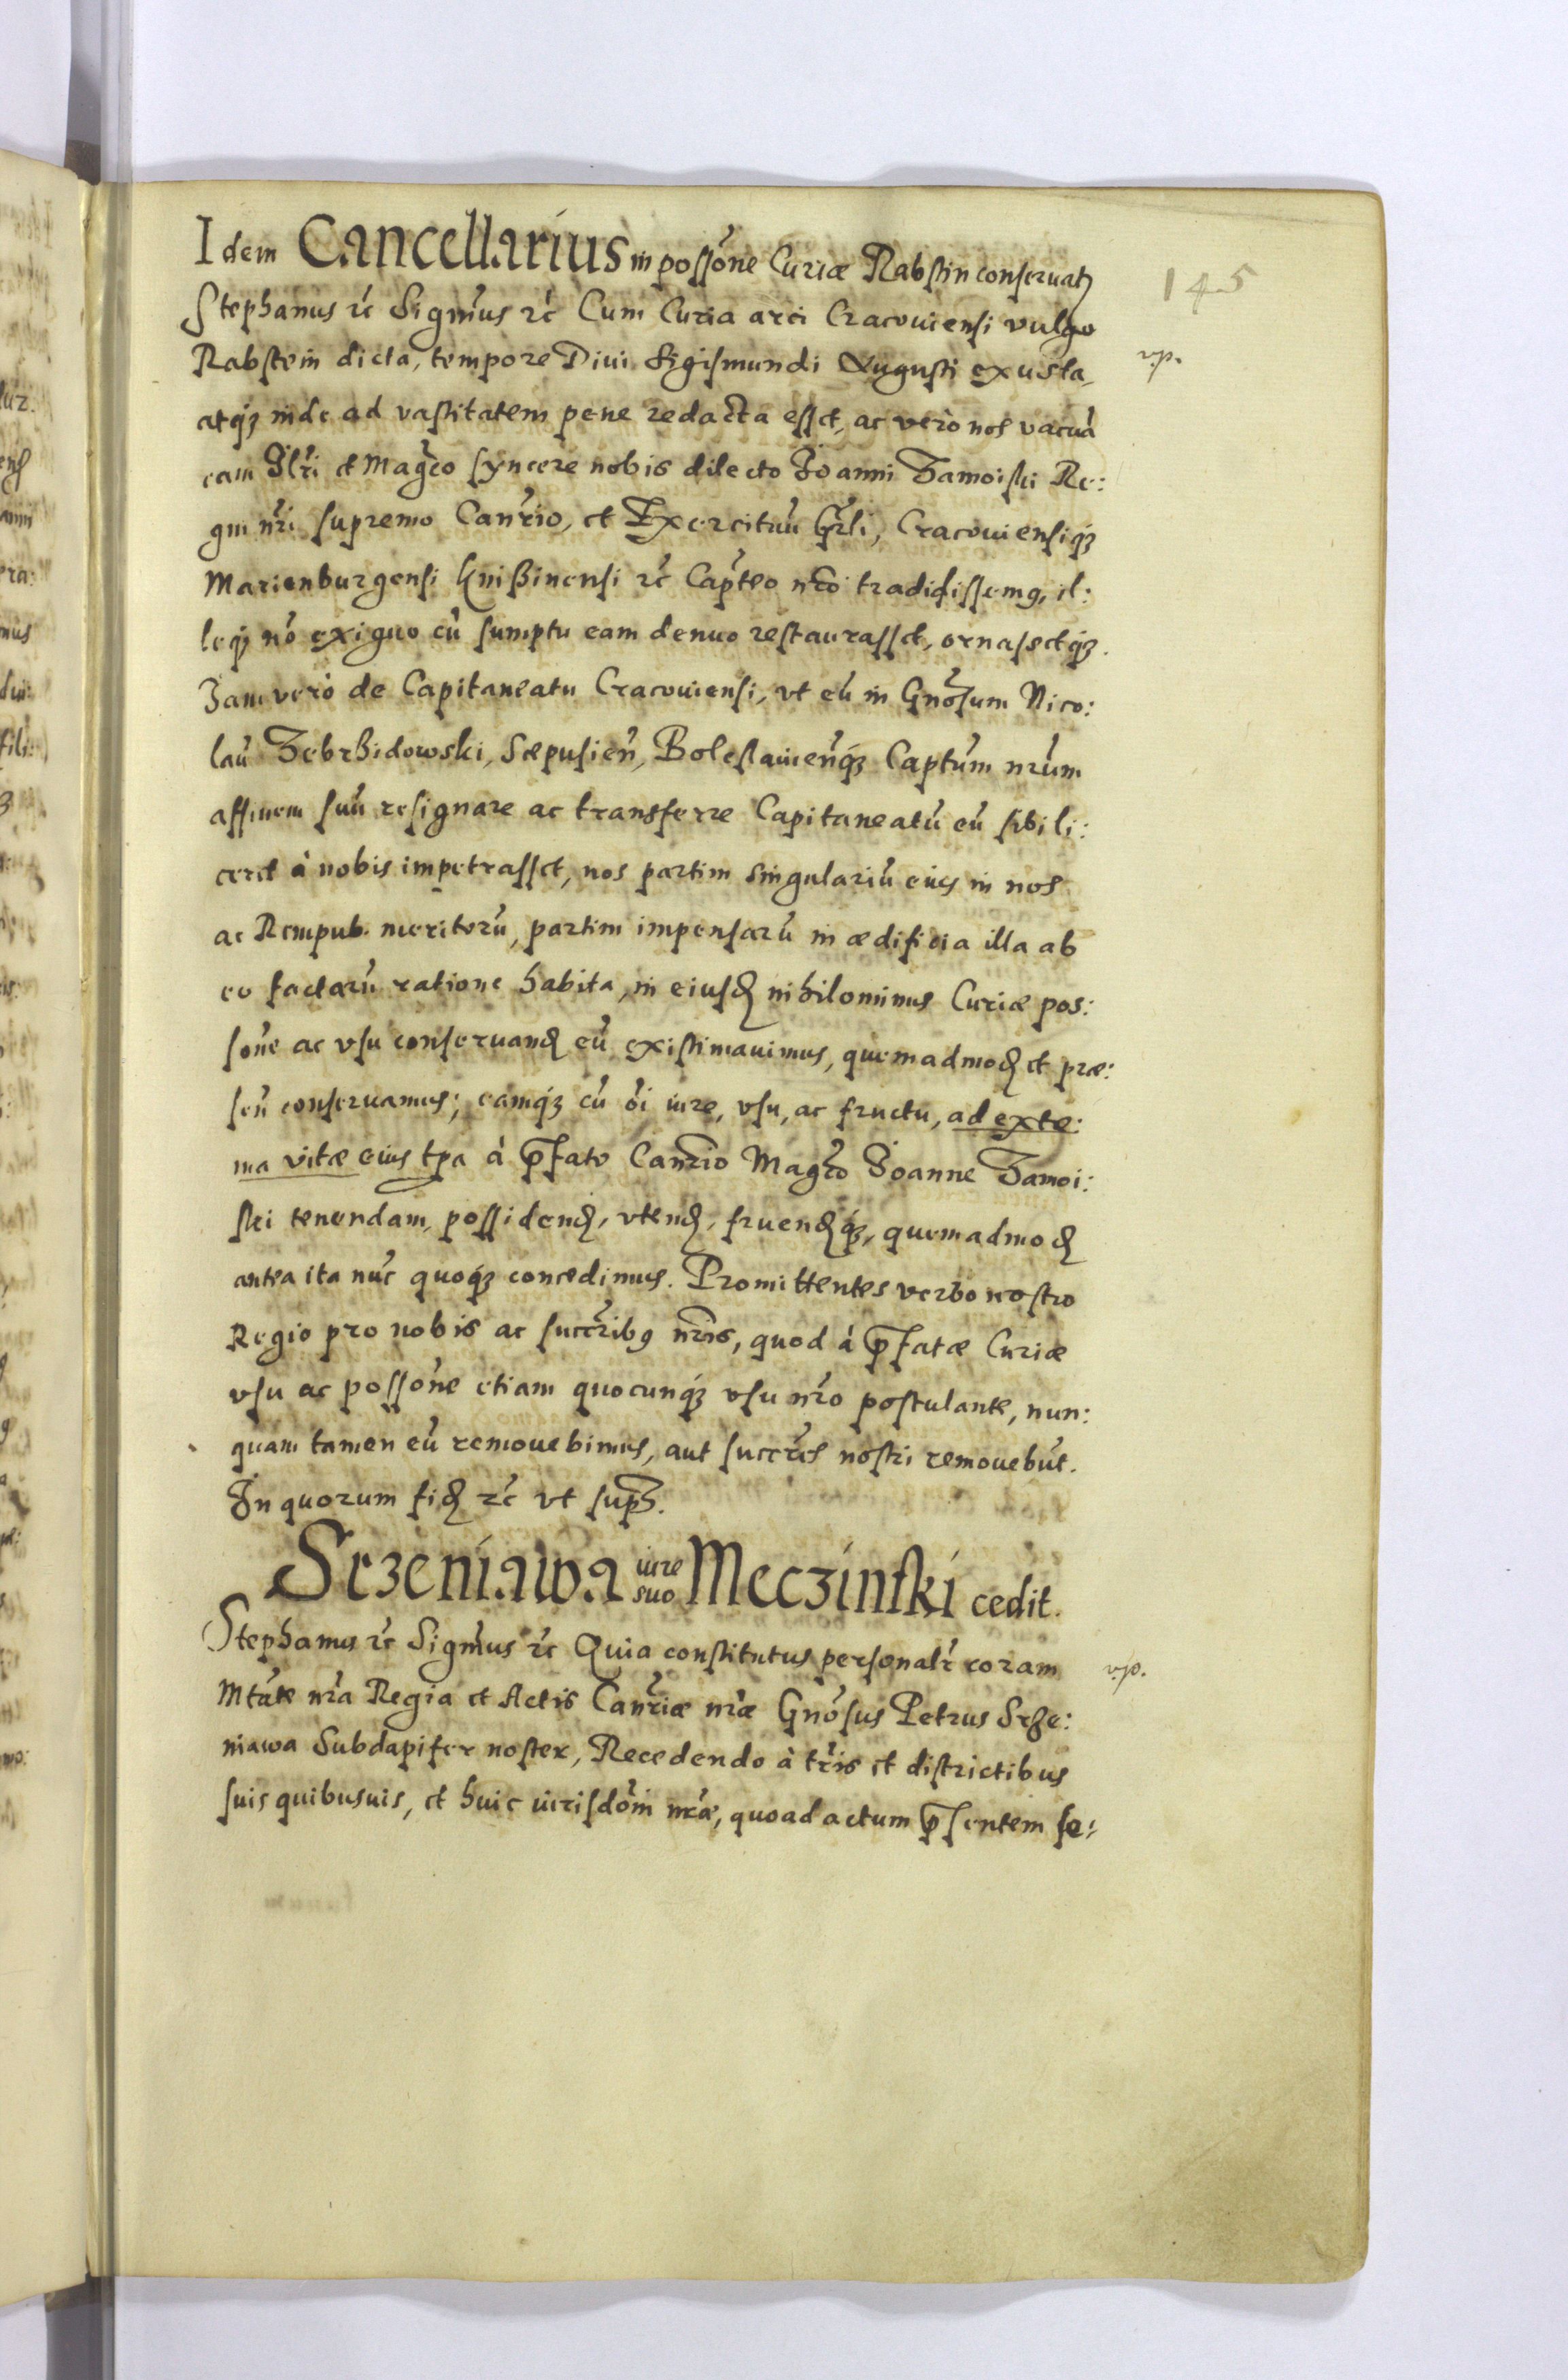 Idem Cancellarius in possōne Curiæ Rabstin conseruatꝫ
145
Stephanus rc̃ Significamus rc̃ Cum Curia arci Cracouiensi vulgo
Rabstein dicta, tempore Diui Sigismundi Augusti exusta,
v.p.
atqꝫ inde ad vastitatem pene redacta esset, ac vero nos vacuā
eam Illr̃i et Magc̃o syncere nobis dilecto Joanni Zamoiski Re:
gni nr̃i supremo Canr̃io, et Exercituū Gr̃li, Cracouiensiqꝫ
Marienburgensi Knißinensi rc̃ Capt̃eo nr̃o tradidissemꝯ, il:
leqꝫ nō exiguo cū sumptu eam denuo restaurasset, ornasetqꝫ.
Jam vero de Capitaneatu Cracouiensi, vt eū in Gnōsum Nico:
laū Zebrzidowski, Scepusieñ, Boleslauieñqꝫ Captūm nr̃um
affinem suū resignare ac transferre Capitaneatū eū sibi li:
ceret à nobis impetrasset, nos partim singulariū eius in nos
ac Rempub. meritorū, partim impensarū in ædificia illa ab
eo factarū ratione habita, in eiusđ nihilominus Curiæ pos:
sōne ac vsu conseruanđ eū existimauimus, quemadmođ et præ:
señ conseruamus; eamqꝫ cū ōi iure, vsu, ac fructu, ad extre:
ma vitæ eius tp̃a à p̃fato Canr̃io Magc̃o Joanne Zamoi:
ski tenendam, possidenđ, vtenđ, fruenđqꝫ, quemadmođ
antea ita nūc quoqꝫ concedimus. Promittentes verbo nostro
Regio pro nobis ac succr̃ibꝯ nr̃is, quod à p̃fatæ Curiæ
vsu ac possōne etiam quocunqꝫ vsu nr̃o postulante, nun:
quam tamen eū remouebimus, aut succr̃es nostri remouebūt.
In quorum fiđ rc̃ vt sup̃.
Srzeniawa iure suo Meczinski cedit.
Stephanus rc̃ Significamus rc̃ Quia constitutus personalr̃ coram
v.p.
Mtāte nr̃a Regia et Actis Canr̃iæ nr̃æ Gnōsus Petrus Srze:
niawa Subdapifer noster, Recedendo à tr̃is et districtibus
suis quibusuis, et huic iurisdōni nr̃æ, quoad actum p̃sentem se: